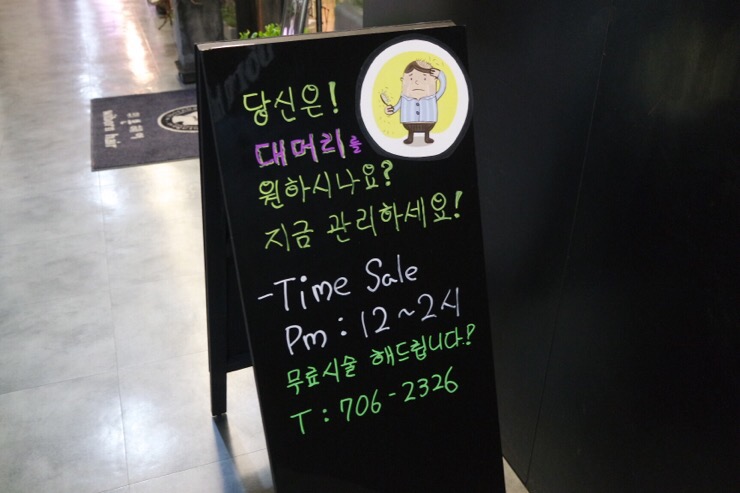 당신은!
대머리를
원하시나요?
지금 관리하세요!
-Time Sale
Pm : 12~2시
무료시술 해드립니다!
T : 706-2326